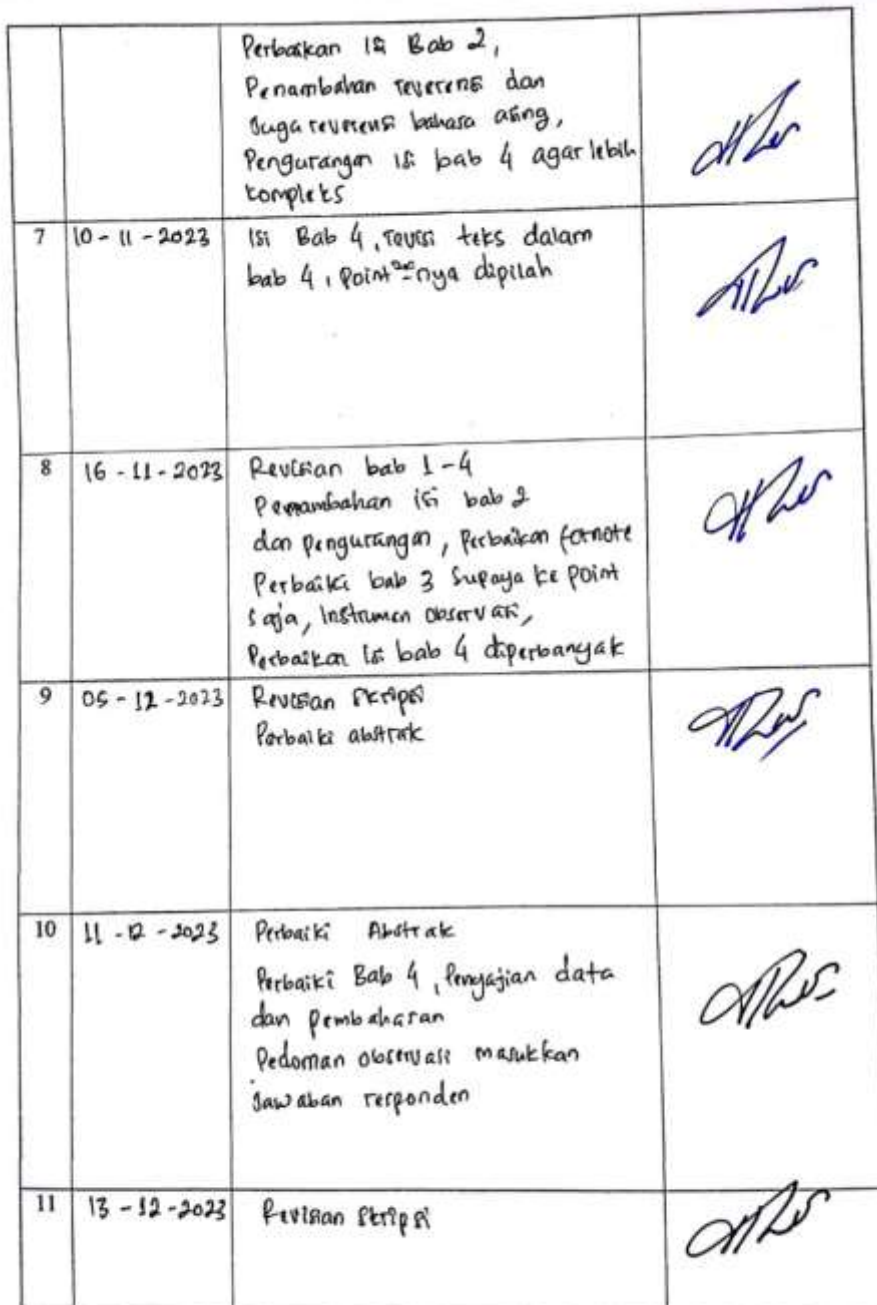 Perbaikan isi Bab 2,
Penambahan reverensi dan
Juga reverensi bahasa asing,
Pengurangan isi bab 4 agar lebih
kompleks
7 10 - 11 - 2023 Isi Bab 4, revisi teks dalam
bab 4, Point²nya dipilah
8 16 - 11 - 2023 Revisian bab 1-4
Penambahan isi bab 2
dan pengurangan, Perbaikan footnote
Perbaiki bab 3 Supaya ke point
saja, Instrumen observasi,
Perbaikan isi bab 4 diperbanyak
9 05 - 12 - 2023 Revisian Skripsi
Perbaiki abstrak
10 11 - 12 - 2023 Perbaiki Abstrak
Perbaiki Bab 4, Penyajian data
dan pembahasan
Pedoman observasi masukkan
Jawaban responden
11 13 - 12 - 2023 Revisian Skripsi